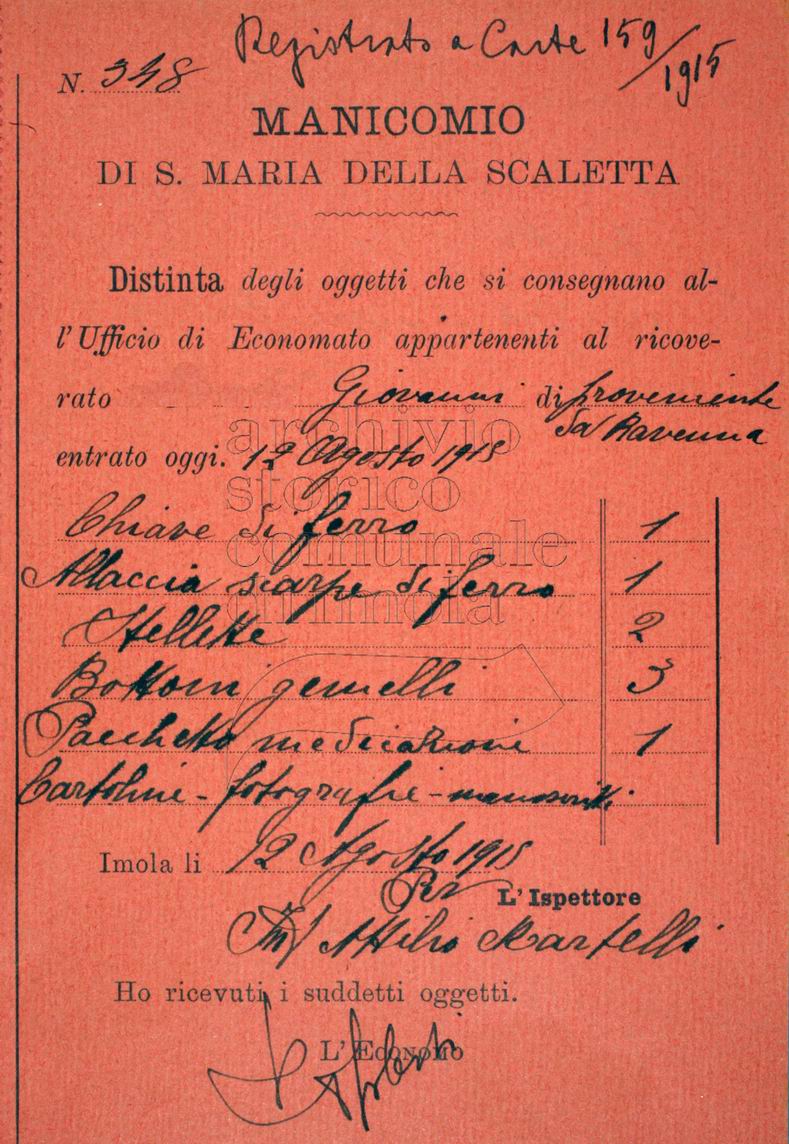 Registrato a Carte 159/1915
N. 348
MANICOMIO
DI S. MARIA DELLA SCALETTA
Distinta degli oggetti che si consegnano al-
l'Ufficio di Economato appartenenti al ricove-
rato Giovanni di proveniente
da Ravenna
entrato oggi. 12 Agosto 1915
archivio
storico
comunale
di imola
Chiave di ferro 1
Allaccia scarpe di ferro 1
Stellette 2
Bottoni gemelli 3
Pacchetto medicazione 1
Cartoline - fotografie - manoscritti
Imola li 12 Agosto 1915
L'Ispettore
Attilio Martelli
Ho ricevuti i suddetti oggetti.
L'Economo